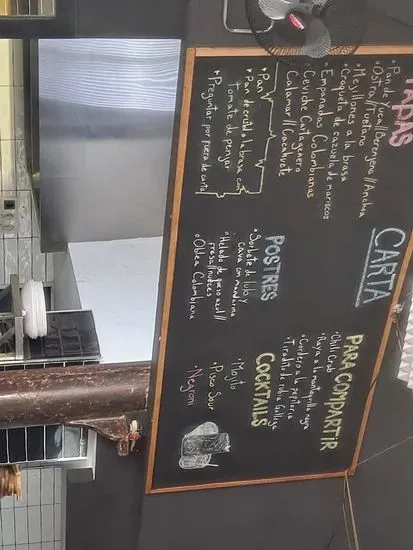 CARTA
TAPAS
• Pan de Yuca//Berenjena//Anchoa
• Ostra//Tuétano
• Mejillones a la brasa
• Croqueta de cazuela de mariscos
• Empanadas Colombianas
• Ceviche Cartagenero
• Calamar//Cacahuete
• Pan
+ Pan de cristal a la brasa con
Tomate de penjar
+ Preguntar por fuera de carta
POSTRES
• Sorbete de lulo y
cava con mandarina
• Helado de queso azul//
fresas//nueces
• Oblea Colombiana
PARA COMPARTIR
• Chili Crab
• Raya a la mantequilla negra
• Cordero a la pepitoria
• Tiradito de rubia Gallega
COCKTAILS
• Mojito
• Pisco Sour
• Negroni